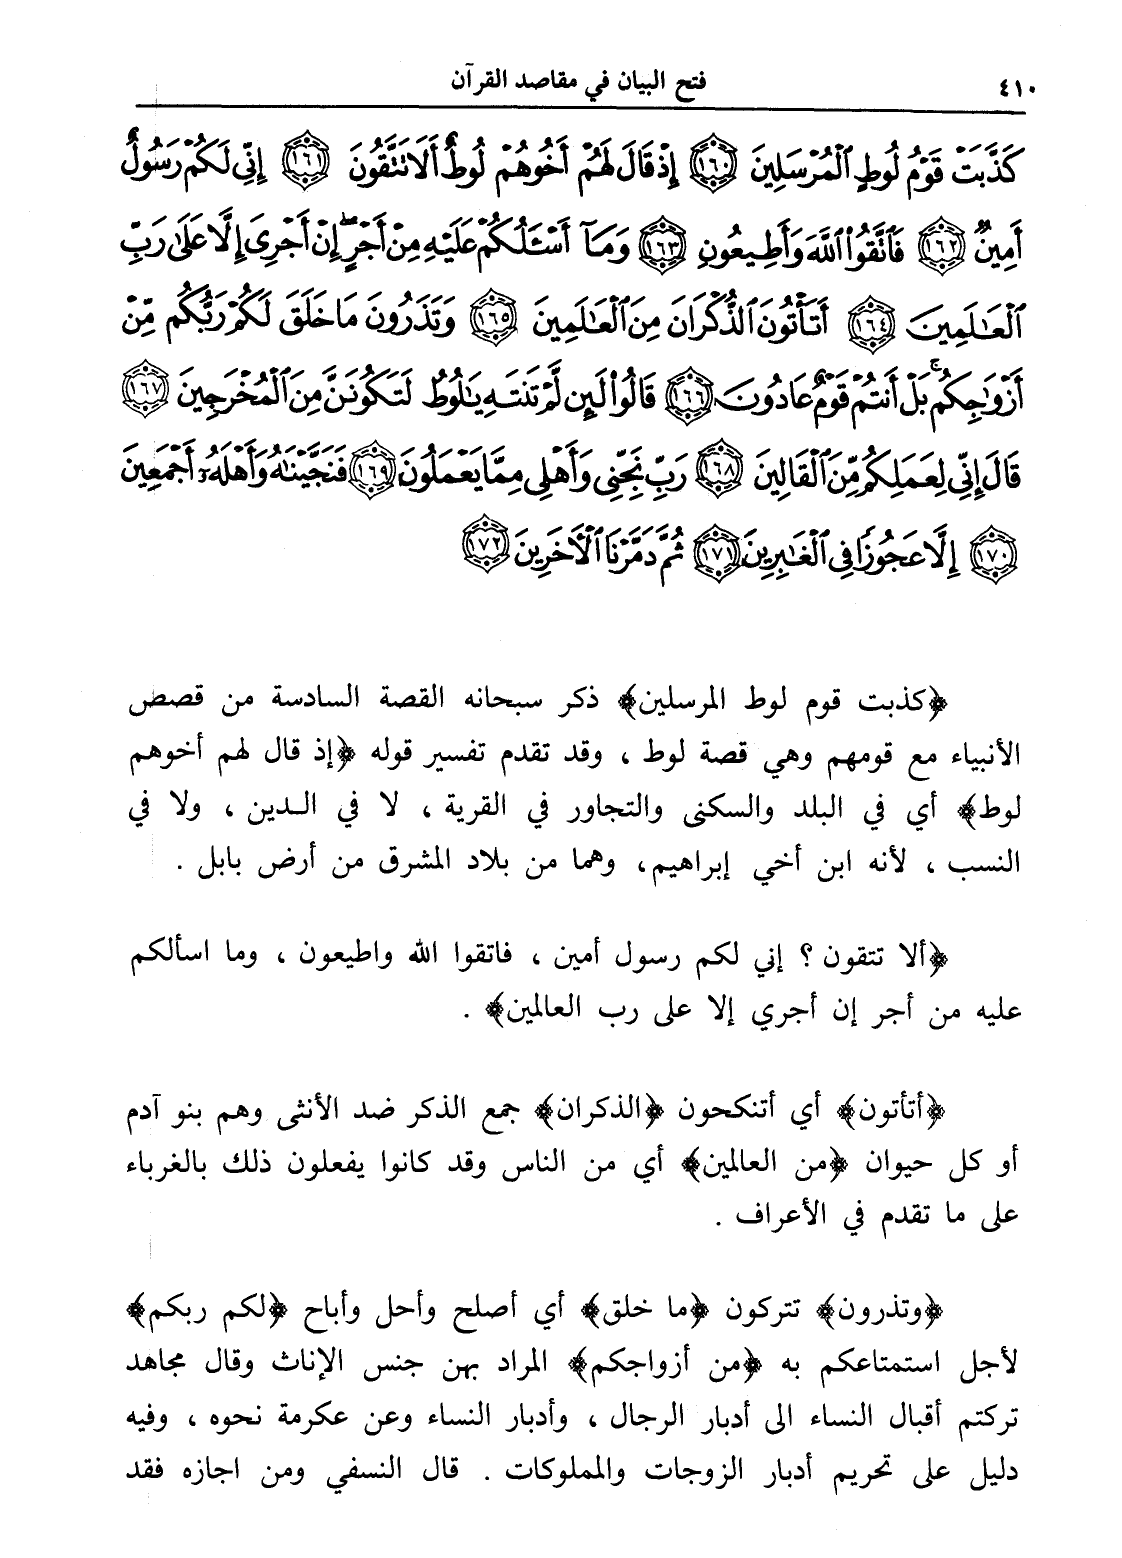 ٤١٠ فتح البيان في مقاصد القرآن
كَذَّبَتْ قَوْمُ لُوطٍ ٱلْمُرْسَلِينَ ١٦٠ إِذْ قَالَ لَهُمْ أَخُوهُمْ لُوطٌ أَلَا تَتَّقُونَ ١٦١ إِنِّي لَكُمْ رَسُولٌ
أَمِينٌ ١٦٢ فَٱتَّقُوا۟ ٱللَّهَ وَأَطِيعُونِ ١٦٣ وَمَآ أَسْـَٔلُكُمْ عَلَيْهِ مِنْ أَجْرٍ ۖ إِنْ أَجْرِىَ إِلَّا عَلَىٰ رَبِّ
ٱلْعَـٰلَمِينَ ١٦٤ أَتَأْتُونَ ٱلذُّكْرَانَ مِنَ ٱلْعَـٰلَمِينَ ١٦٥ وَتَذَرُونَ مَا خَلَقَ لَكُمْ رَبُّكُم مِّنْ
أَزْوَٰجِكُم ۚ بَلْ أَنتُمْ قَوْمٌ عَادُونَ ١٦٦ قَالُوا۟ لَئِن لَّمْ تَنتَهِ يَـٰلُوطُ لَتَكُونَنَّ مِنَ ٱلْمُخْرَجِينَ ١٦٧
قَالَ إِنِّي لِعَمَلِكُم مِّنَ ٱلْقَالِينَ ١٦٨ رَبِّ نَجِّنِي وَأَهْلِي مِمَّا يَعْمَلُونَ ١٦٩ فَنَجَّيْنَـٰهُ وَأَهْلَهُۥٓ أَجْمَعِينَ
١٧٠ إِلَّا عَجُوزًا فِي ٱلْغَـٰبِرِينَ ١٧١ ثُمَّ دَمَّرْنَا ٱلْأَخَرِينَ ١٧٢
﴿كذبت قوم لوط المرسلين﴾ ذكر سبحانه القصة السادسة من قصص
الأنبياء مع قومهم وهي قصة لوط ، وقد تقدم تفسير قوله ﴿إذ قال لهم أخوهم
لوط﴾ أي في البلد والسكنى والتجاور في القرية ، لا في الـدين ، ولا في
النسب ، لأنه ابن أخي إبراهيم، وهما من بلاد المشرق من أرض بابل .
﴿ألا تتقون ؟ إني لكم رسول أمين ، فاتقوا الله واطيعون ، وما اسألكم
عليه من أجر إن أجري إلا على رب العالمين﴾ .
﴿أتأتون﴾ أي أتنكحون ﴿الذكران﴾ جمع الذكر ضد الأنثى وهم بنو آدم
أو كل حيوان ﴿من العالمين﴾ أي من الناس وقد كانوا يفعلون ذلك بالغرباء
على ما تقدم في الأعراف .
﴿وتذرون﴾ تتركون ﴿ما خلق﴾ أي أصلح وأحل وأباح ﴿لكم ربكم﴾
لأجل استمتاعكم به ﴿من أزواجكم﴾ المراد بهن جنس الإناث وقال مجاهد
تركتم أقبال النساء الى أدبار الرجال ، وأدبار النساء وعن عكرمة نحوه ، وفيه
دليل على تحريم أدبار الزوجات والمملوكات . قال النسفي ومن اجازه فقد